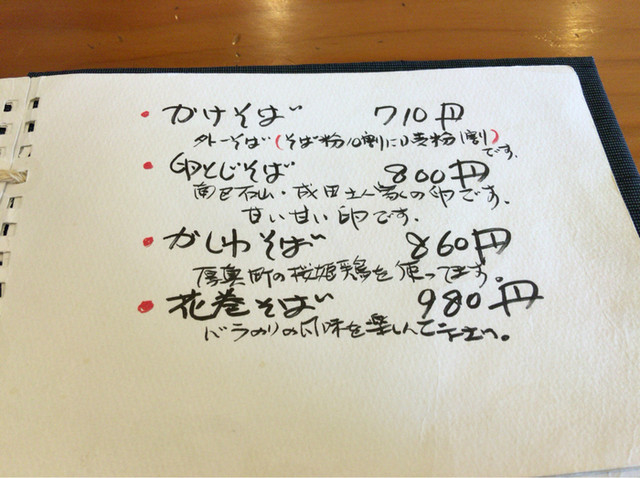 ・かけそば 710円
外一そば(そば粉10割に小麦粉1割)です。
・卵とじそば 800円
南区石山・成田さん家の卵です。
甘い甘い卵です。
・かしわそば 860円
厚真町の桜姫鶏を使ってます。
・花巻そば 980円
バラのりの風味を楽しんで下さい。